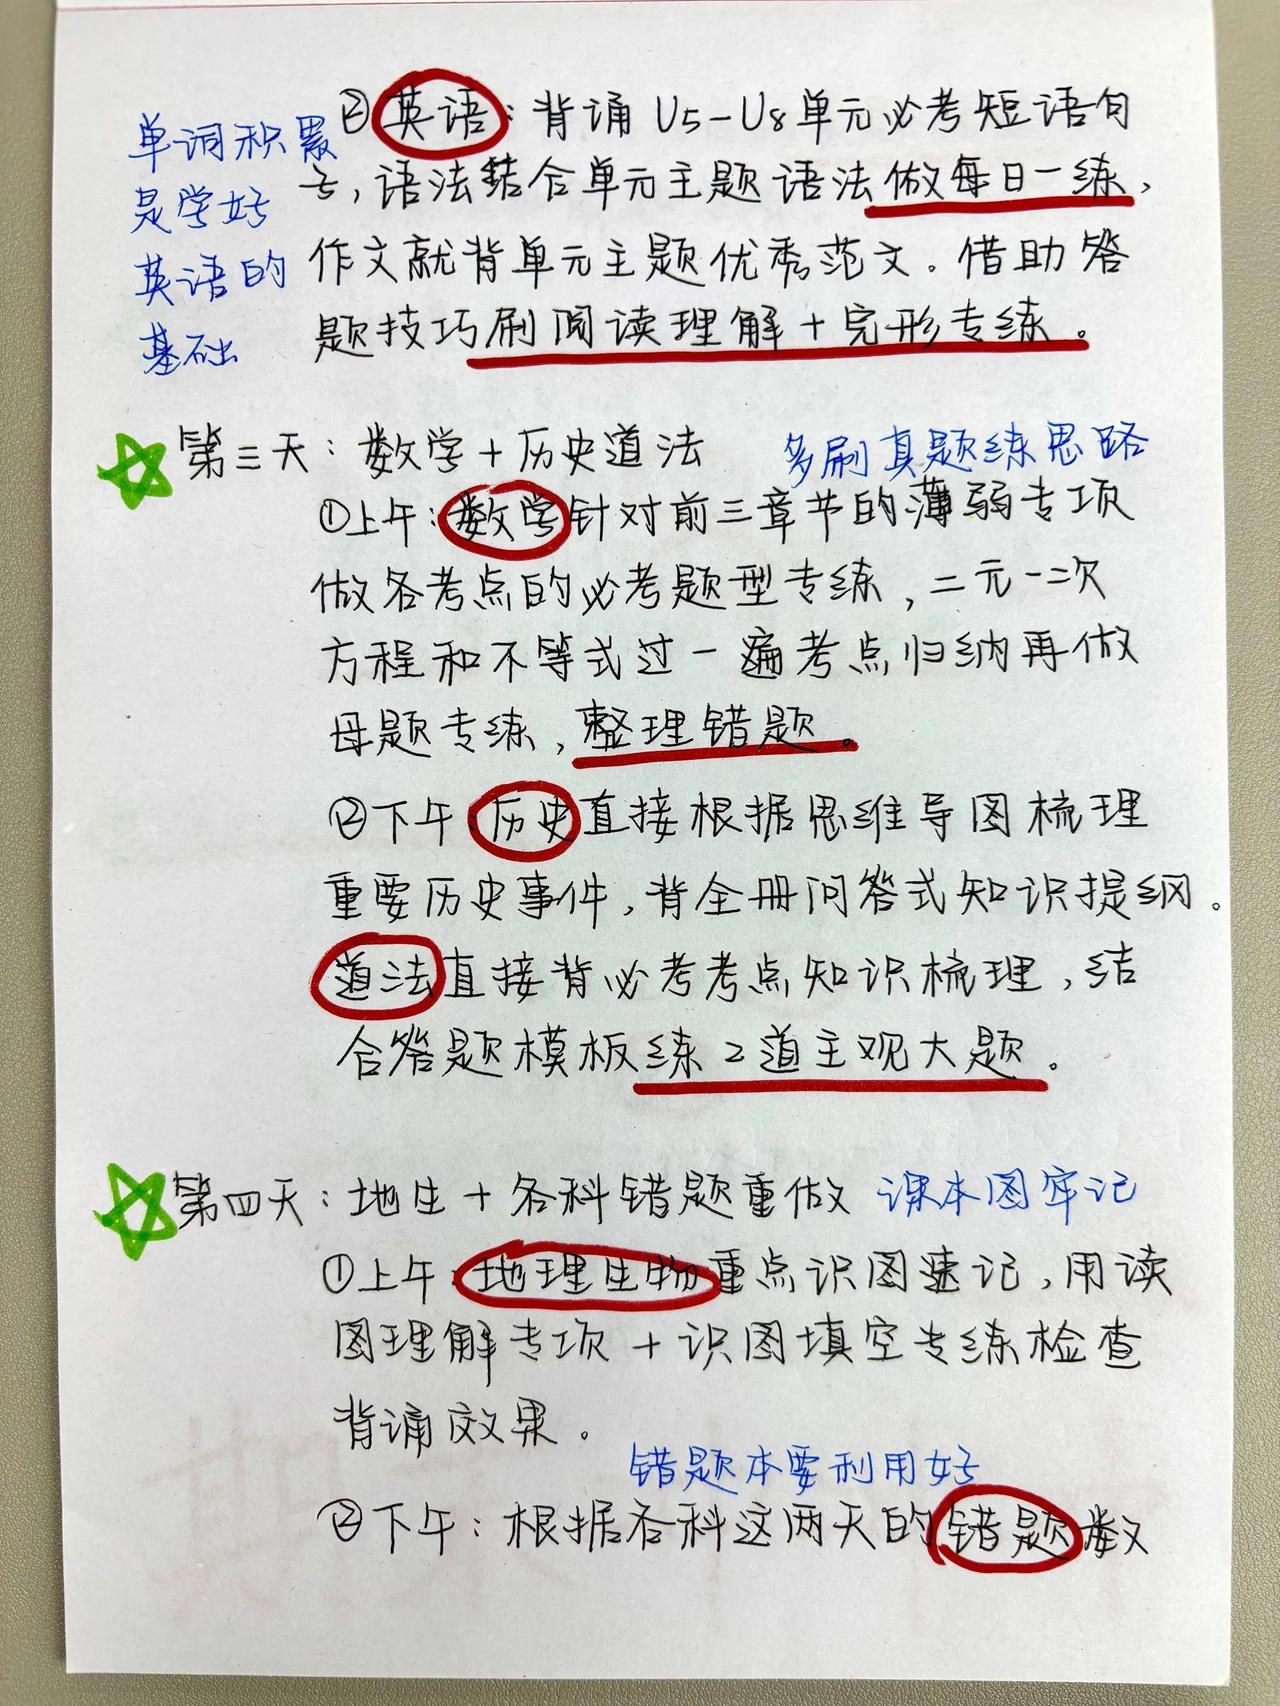 单词积累
是学好
英语的
基础
②英语:背诵U5-U8单元必考短语句
子,语法结合单元主题语法做每日一练,
作文就背单元主题优秀范文。借助答
题技巧刷阅读理解+完形专练。
第三天:数学+历史道法 多刷真题练思路
①上午:数学针对前三章节的薄弱专项
做各考点的必考题型专练,二元一次
方程和不等式过一遍考点归纳再做
母题专练,整理错题。
②下午:历史直接根据思维导图梳理
重要历史事件,背全册问答式知识提纲。
道法直接背必考考点知识梳理,结
合答题模板练2道主观大题。
第四天:地生+各科错题重做 课本图牢记
①上午:地理生物重点识图速记,用读
图理解专项+识图填空专练检查
背诵效果。
错题本要利用好
②下午:根据各科这两天的错题数